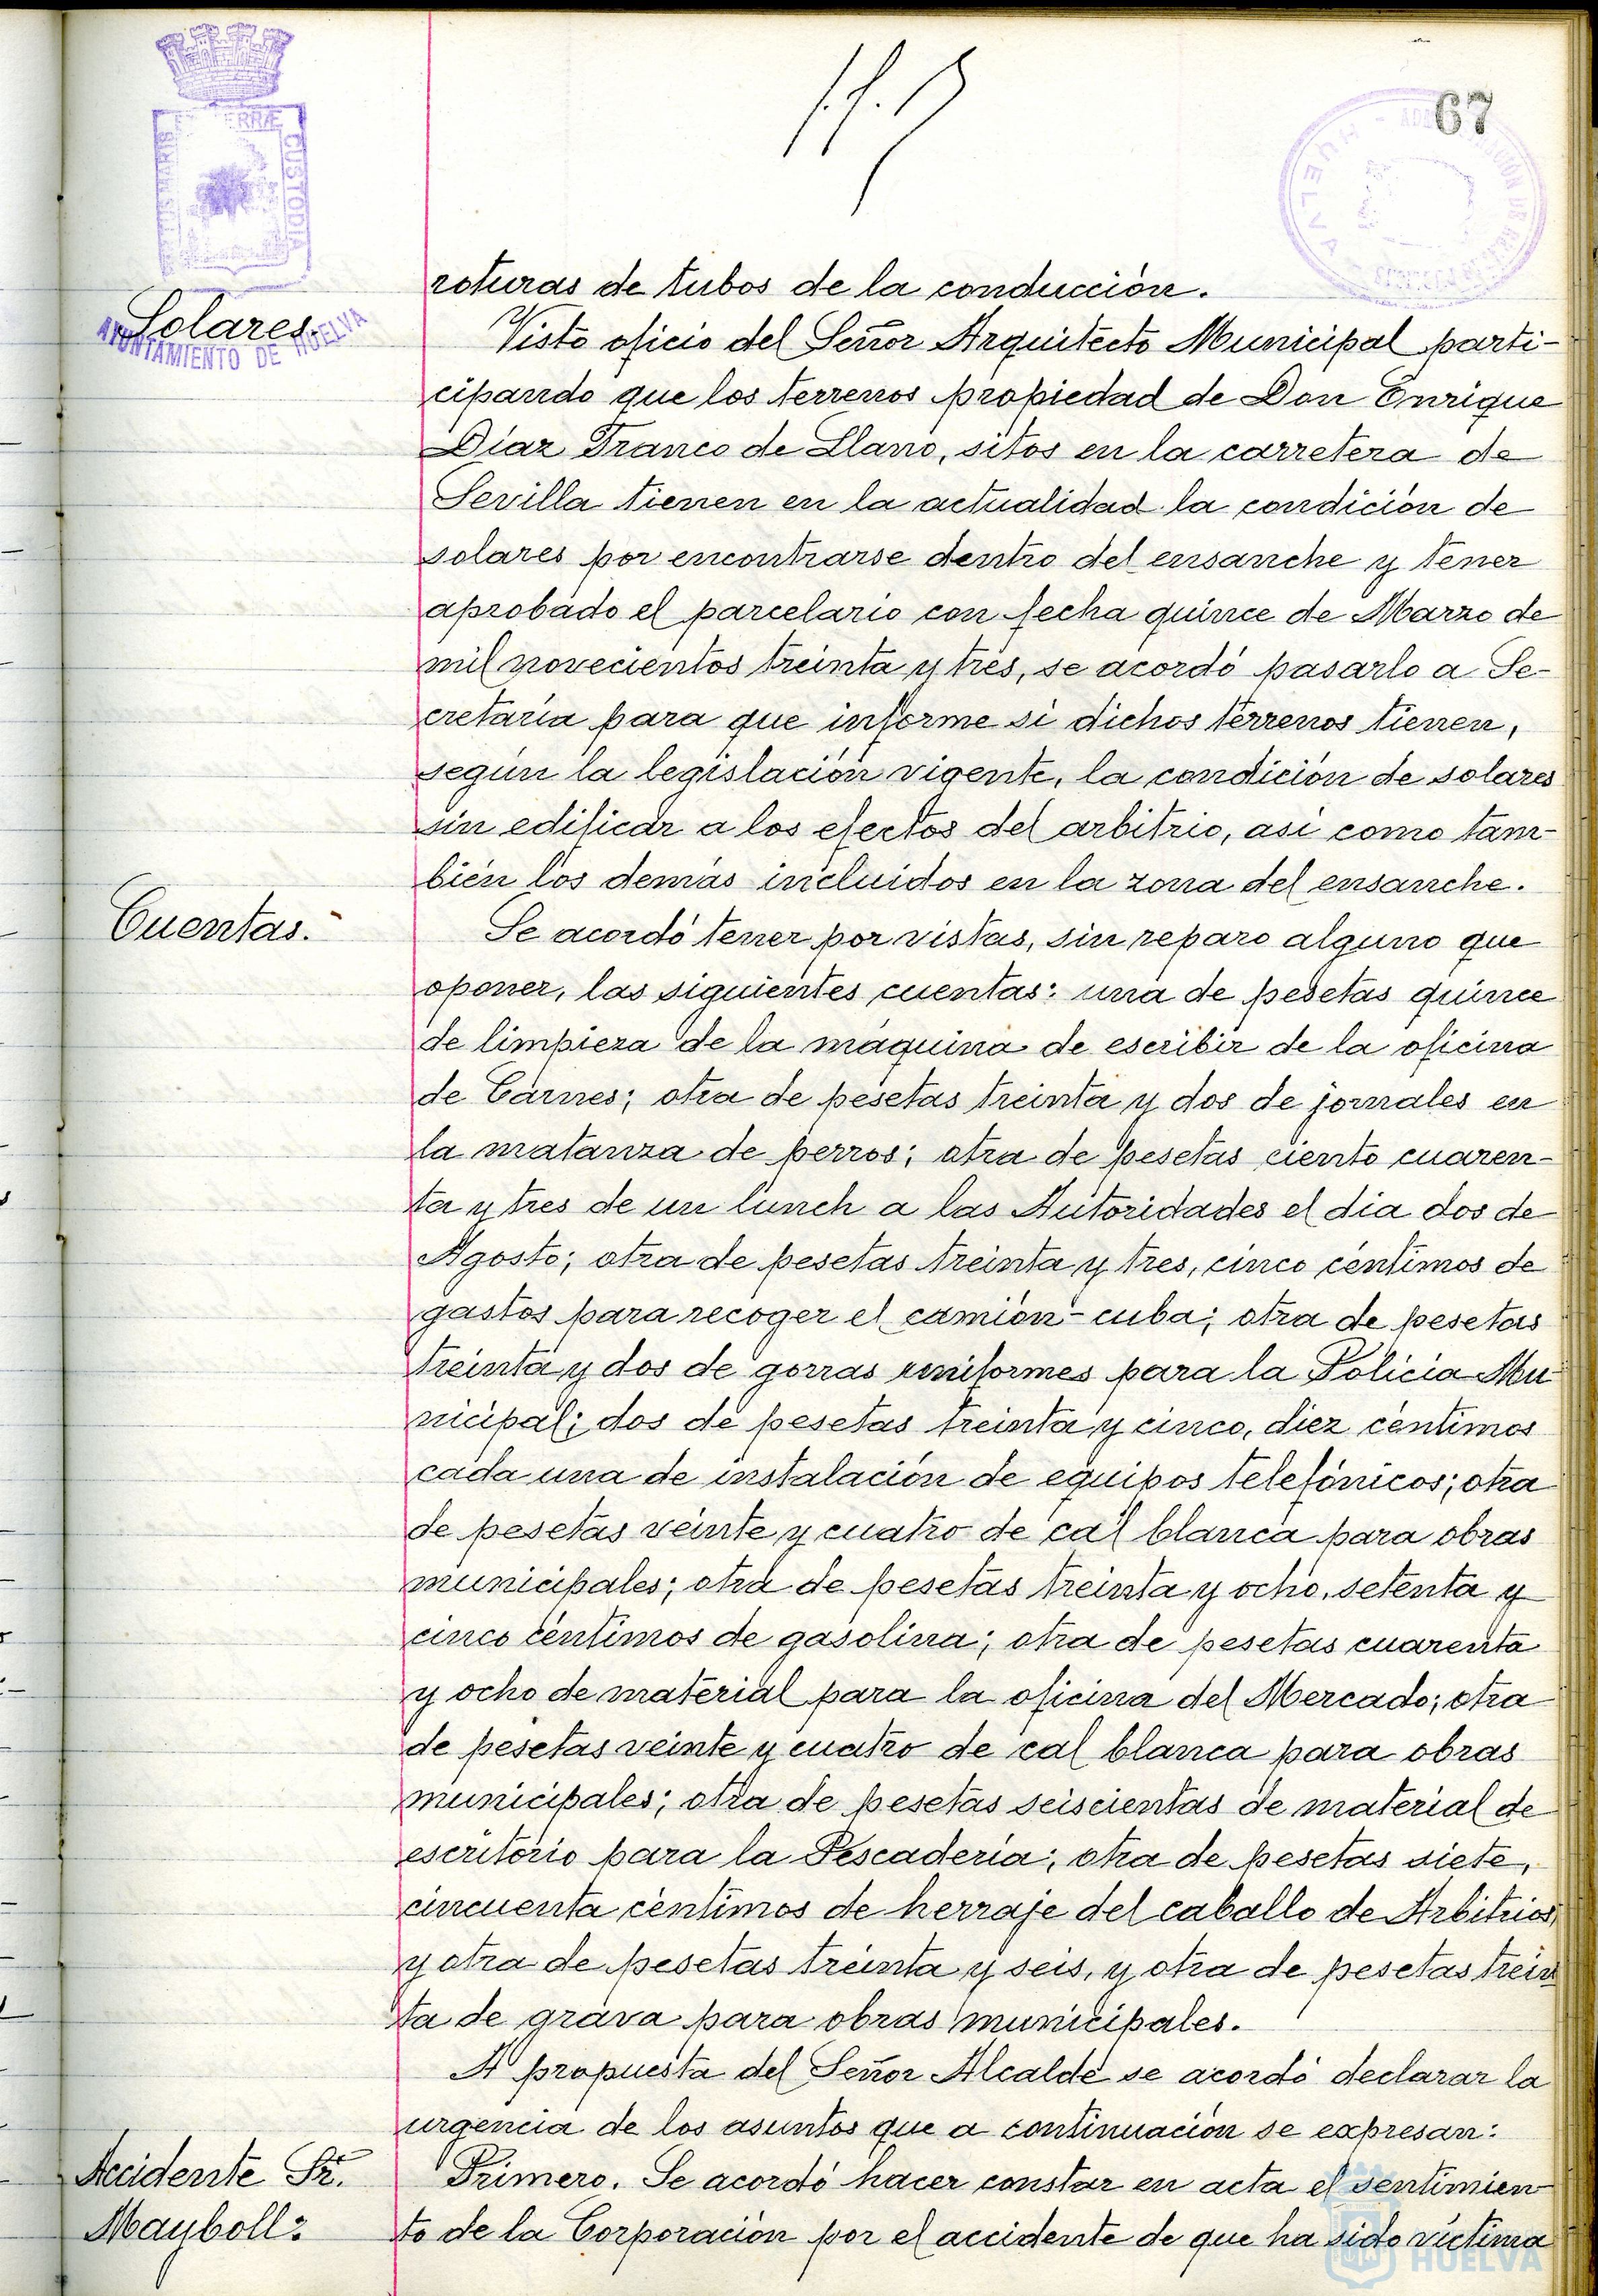 67
TERRÆ
CUSTODIA
AYUNTAMIENTO DE HUELVA
HUELVA
roturas de tubos de la conducción.
Solares.
Visto oficio del Señor Arquitecto Municipal parti-
cipando que los terrenos propiedad de Don Enrique
Díaz Franco de Llano, sitos en la carretera de
Sevilla tienen en la actualidad la condición de
solares por encontrarse dentro del ensanche y tener
aprobado el parcelario con fecha quince de Marzo de
mil novecientos treinta y tres, se acordó pasarlo a Se-
cretaría para que informe si dichos terrenos tienen,
según la legislación vigente, la condición de solares
sin edificar a los efectos del arbitrio, así como tam-
bién los demás incluidos en la zona del ensanche.
Cuentas.
Se acordó tener por vistas, sin reparo alguno que
oponer, las siguientes cuentas: una de pesetas quince
de limpieza de la máquina de escribir de la oficina
de Carnes; otra de pesetas treinta y dos de jornales en
la matanza de perros; otra de pesetas ciento cuaren-
ta y tres de un lunch a las Autoridades el día dos de
Agosto; otra de pesetas treinta y tres, cinco céntimos de
gastos para recoger el camión-cuba; otra de pesetas
treinta y dos de gorras uniformes para la Policía Mu
nicipal; dos de pesetas treinta y cinco, diez céntimos
cada una de instalación de equipos telefónicos; otra
de pesetas veinte y cuatro de cal blanca para obras
municipales; otra de pesetas treinta y ocho, setenta y
cinco céntimos de gasolina; otra de pesetas cuarenta
y ocho de material para la oficina del Mercado; otra
de pesetas veinte y cuatro de cal blanca para obras
municipales; otra de pesetas seiscientas de material de
escritorio para la Pescadería; otra de pesetas siete,
cincuenta céntimos de herraje del caballo de Arbitrios,
y otra de pesetas treinta y seis, y otra de pesetas trein
ta de grava para obras municipales.
A propuesta del Señor Alcalde se acordó declarar la
urgencia de los asuntos que a continuación se expresan:
Accidente Sr.
Mayboll:
Primero. Se acordó hacer constar en acta el sentimien
to de la Corporación por el accidente de que ha sido víctima
HUELVA